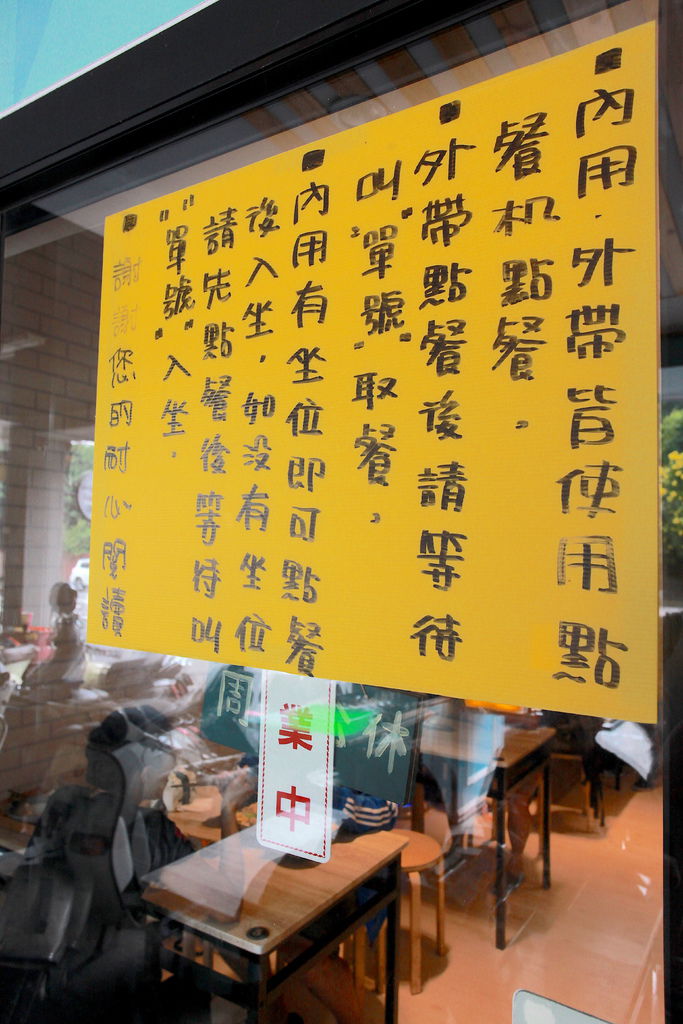 ■內用.外帶皆使用點
餐机點餐.
■外帶點餐後請等待
叫"單號"取餐.
■內用有坐位即可點餐
後入坐.如没有坐位
請先點餐後等待叫
"單號"入坐.
■謝謝您的耐心閱讀
業中
周
休